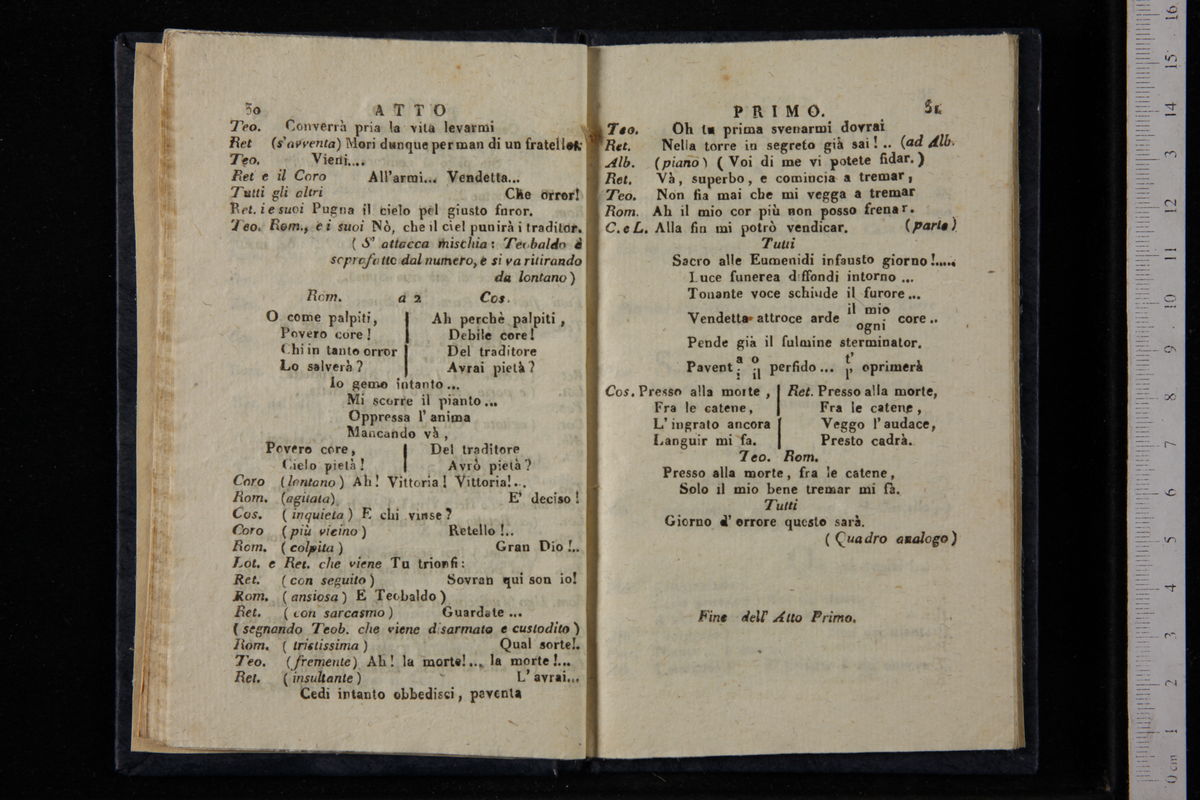 30 ATTO
Teo. Converrà pria la vita levarmi
Ret (s'avventa) Mori dunque per man di un fratello!
Teo. Vieni....
Ret e il Coro All'armi... Vendetta...
Tutti gli altri Che orror!
Ret. i e suoi Pugna il cielo pel giusto furor.
Teo. Rom., e i suoi Nò, che il ciel punirà i traditor.
( S' attacca mischia: Teobaldo è
soprafatto dal numero, e si va ritirando
da lontano )
Rom. a 2 Cos.
O come palpiti, | Ah perchè palpiti,
Povero core! | Debile core!
Chi in tanto orror | Del traditore
Lo salverà? | Avrai pietà?
Io gemo intanto...
Mi scorre il pianto...
Oppressa l' anima
Mancando và,
Povero core, | Del traditore
Cielo pietà! | Avrò pietà?
Coro (lontano) Ah! Vittoria! Vittoria!...
Rom. (agitata) E' deciso!
Cos. (inquieta) E chi vinse?
Coro (più vicino) Retello!..
Rom. (colpita) Gran Dio!..
Lot. e Ret. che viene Tu trionfi:
Ret. (con seguito) Sovran qui son io!
Rom. (ansiosa) E Teobaldo)
Ret. (con sarcasmo) Guardate...
(segnando Teob. che viene disarmato e custodito)
Rom. (tristissima) Qual sorte!.
Teo. (fremente) Ah! la morte!... la morte!...
Ret. (insultante) L' avrai...
Cedi intanto obbedisci, paventa
PRIMO. 31
Teo. Oh tu prima svenarmi dovrai
Ret. Nella torre in segreto già sai!.. (ad Alb.
Alb. (piano) (Voi di me vi potete fidar.)
Ret. Và, superbo, e comincia a tremar,
Teo. Non fia mai che mi vegga a tremar
Rom. Ah il mio cor più non posso frenar.
C. e L. Alla fin mi potrò vendicar. (parte)
Tutti
Sacro alle Eumenidi infausto giorno!.....
Luce funerea diffondi intorno...
Tonante voce schiude il furore...
Vendetta attroce arde il mio core..
ogni
Pende già il fulmine sterminator.
a o t'
Pavent. il perfido... oprimerà
i l'
Cos. Presso alla morte, | Ret. Presso alla morte,
Fra le catene, | Fra le catene,
L' ingrato ancora | Veggo l' audace,
Languir mi fa. | Presto cadrà.
Teo. Rom.
Presso alla morte, fra le catene,
Solo il mio bene tremar mi fà.
Tutti
Giorno d' orrore questo sarà.
(Quadro analogo)
Fine dell' Atto Primo.
16
15
14
3
12
11
10
9
8
7
6
5
4
3
2
1
0 cm